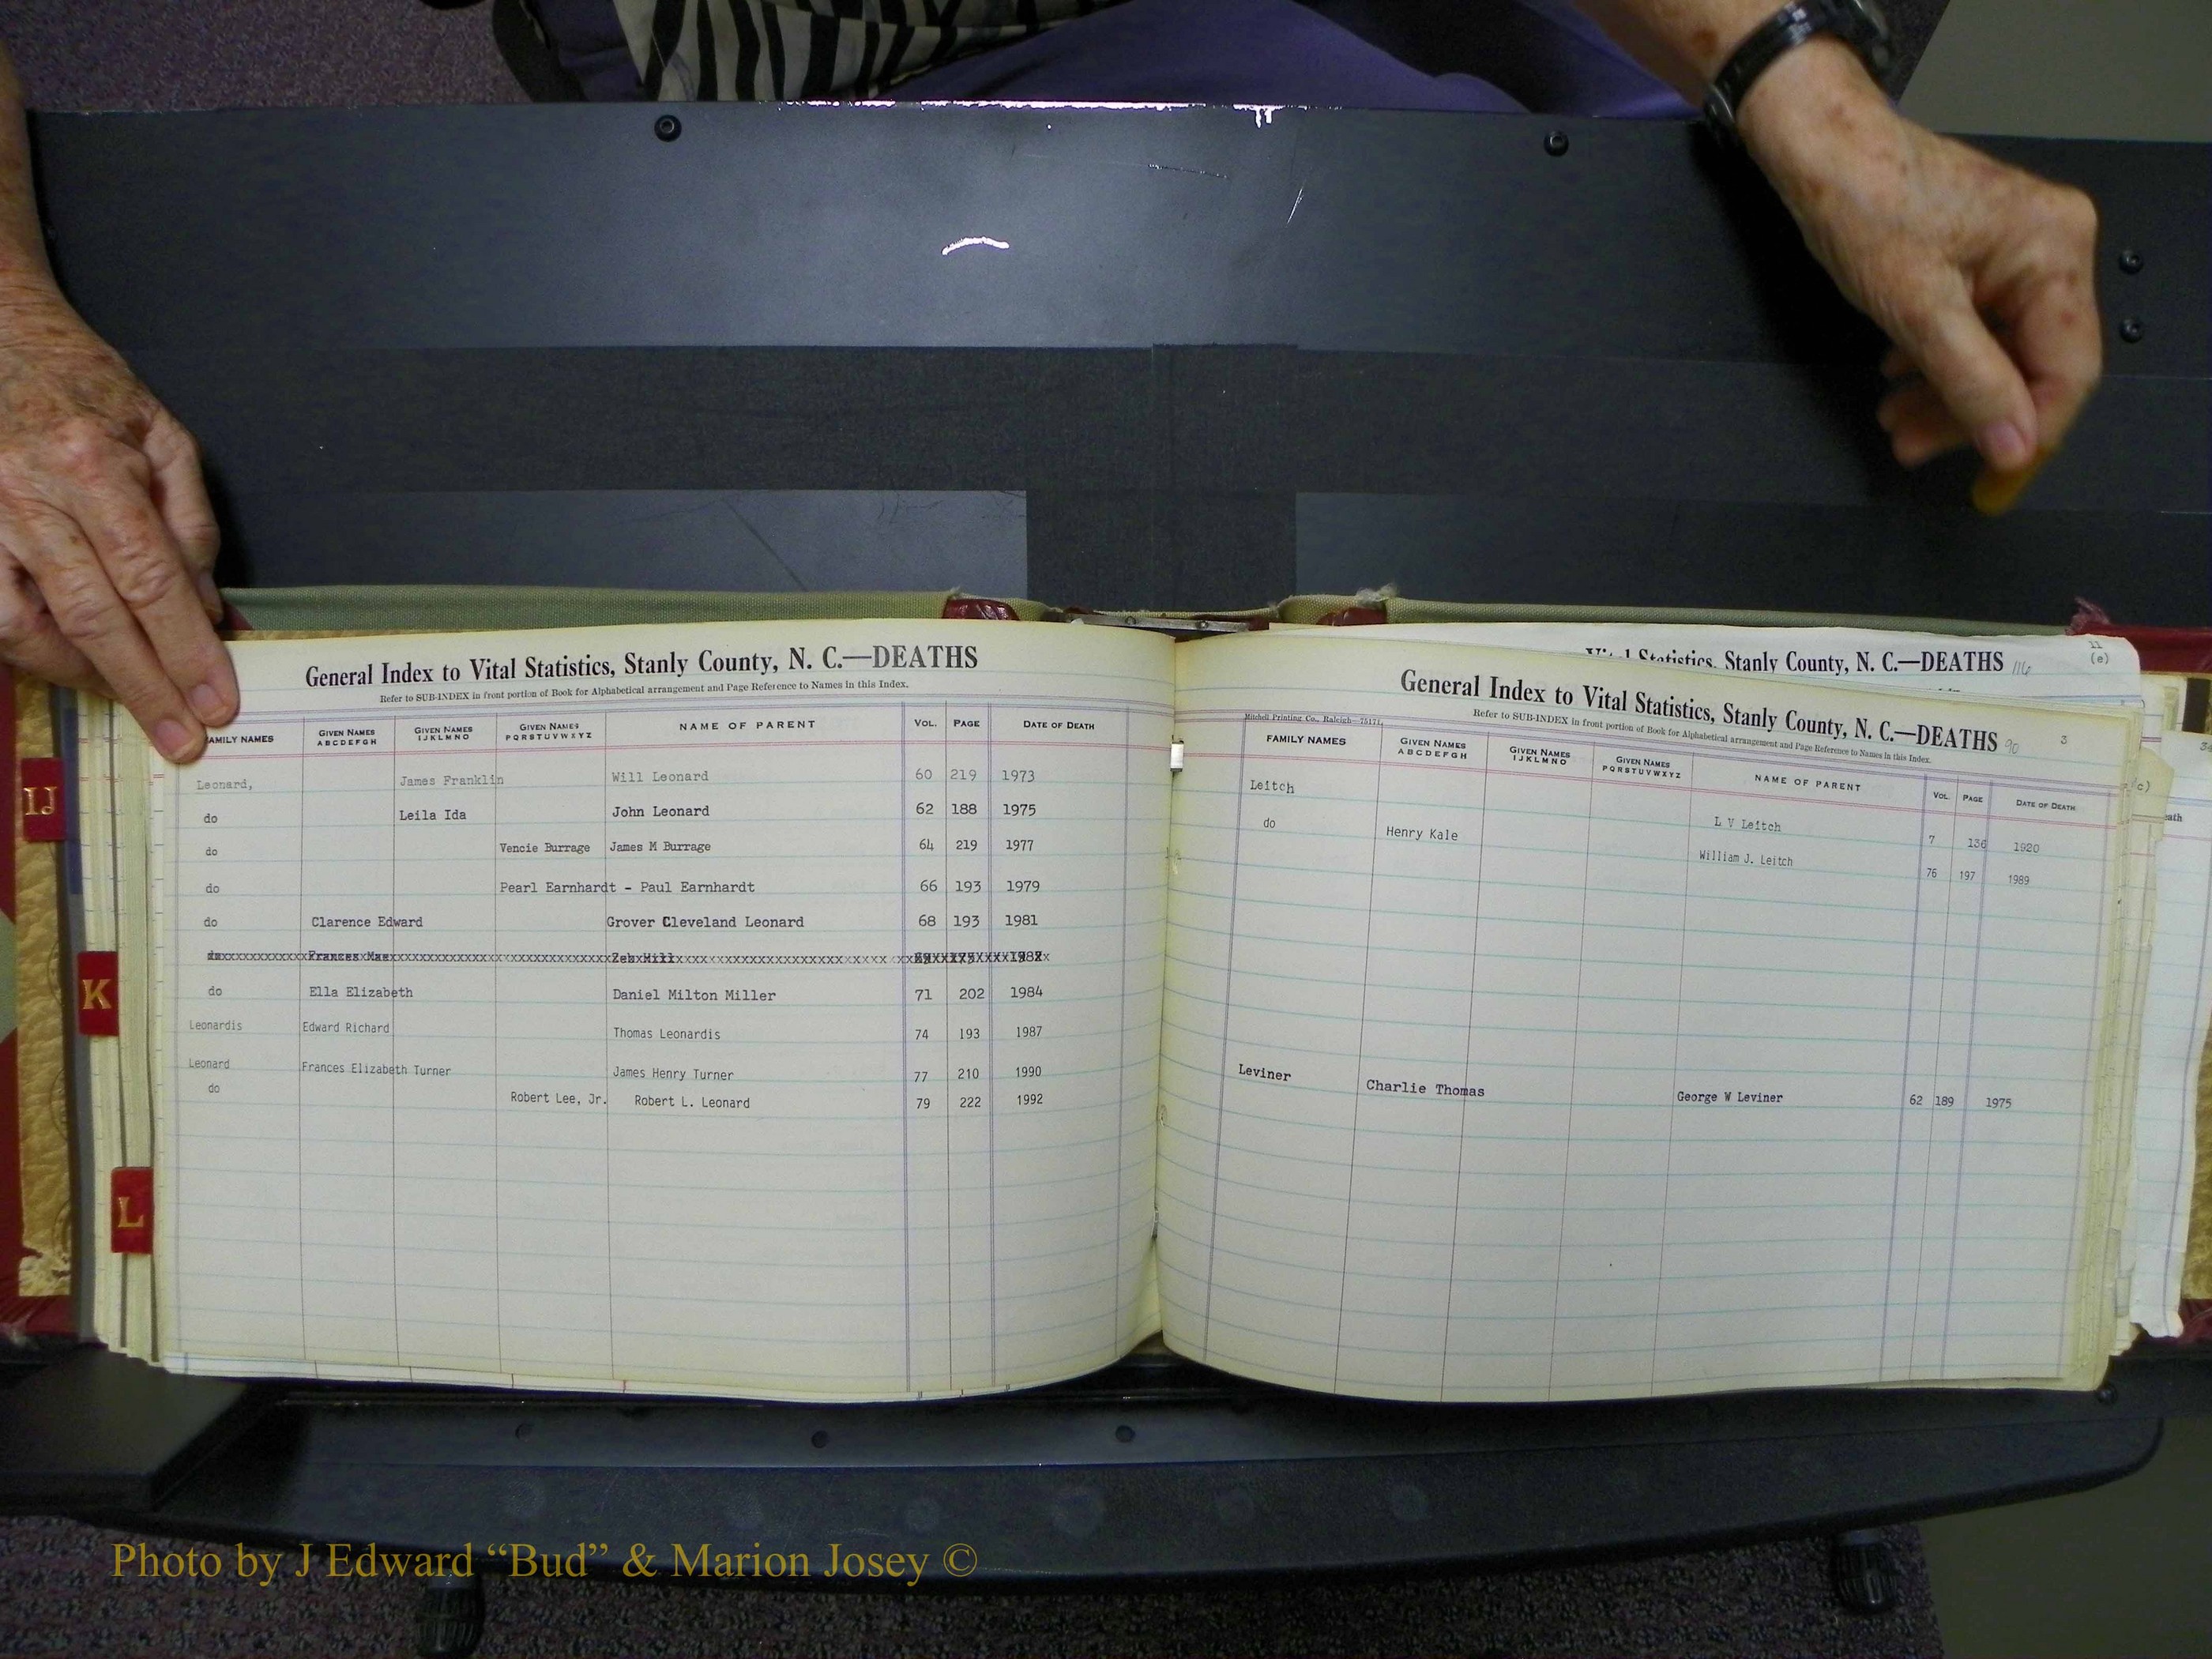 General Index to Vital Statistics, Stanly County, N. C.—DEATHS
Refer to SUB-INDEX in front portion of Book for Alphabetical arrangement and Page Reference to Names in this Index.
AMILY NAMES GIVEN NAMES ABCDEFGH GIVEN NAMES IJKLMNO GIVEN NAMES PQRSTUVWXYZ NAME OF PARENT VOL. PAGE DATE OF DEATH
Leonard, James Franklin Will Leonard 60 219 1973
do Leila Ida John Leonard 62 188 1975
do Vencie Burrage James M Burrage 64 219 1977
do Pearl Earnhardt - Paul Earnhardt 66 193 1979
do Clarence Edward Grover Cleveland Leonard 68 193 1981
Frances Mae Zeb Hill
do Ella Elizabeth Daniel Milton Miller 71 202 1984
Leonardis Edward Richard Thomas Leonardis 74 193 1987
Leonard Frances Elizabeth Turner James Henry Turner 77 210 1990
do Robert Lee, Jr. Robert L. Leonard 79 222 1992
IJ
K
L
Statistics, Stanly County, N. C.—DEATHS 116
11
(e)
General Index to Vital Statistics, Stanly County, N. C.—DEATHS 90 3
Mitchell Printing Co., Raleigh—75171
Refer to SUB-INDEX in front portion of Book for Alphabetical arrangement and Page Reference to Names in this Index.
FAMILY NAMES GIVEN NAMES ABCDEFGH GIVEN NAMES IJKLMNO GIVEN NAMES PQRSTUVWXYZ NAME OF PARENT VOL. PAGE DATE OF DEATH
Leitch L V Leitch 7 136 1920
do Henry Kale William J. Leitch 76 197 1989
Leviner Charlie Thomas George W Leviner 62 189 1975
Photo by J Edward “Bud” & Marion Josey ©